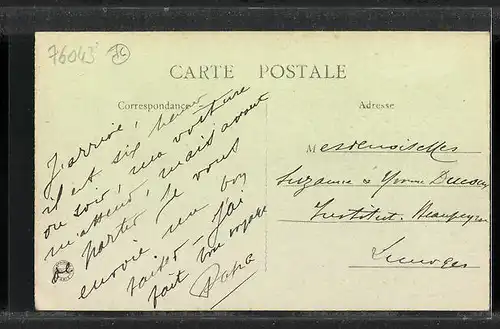 76043 JC
CARTE POSTALE
Correspondance
Adresse
J'arrive,
il est six heures
du soir, ma voiture
m'attend, mais avant
de partir je vous
envoie un bon
baiser - J'ai
fait bon voyage
Papa
Mesdemoiselles
Suzanne & Yvonne
Institut Beaupeyrat
Limoges